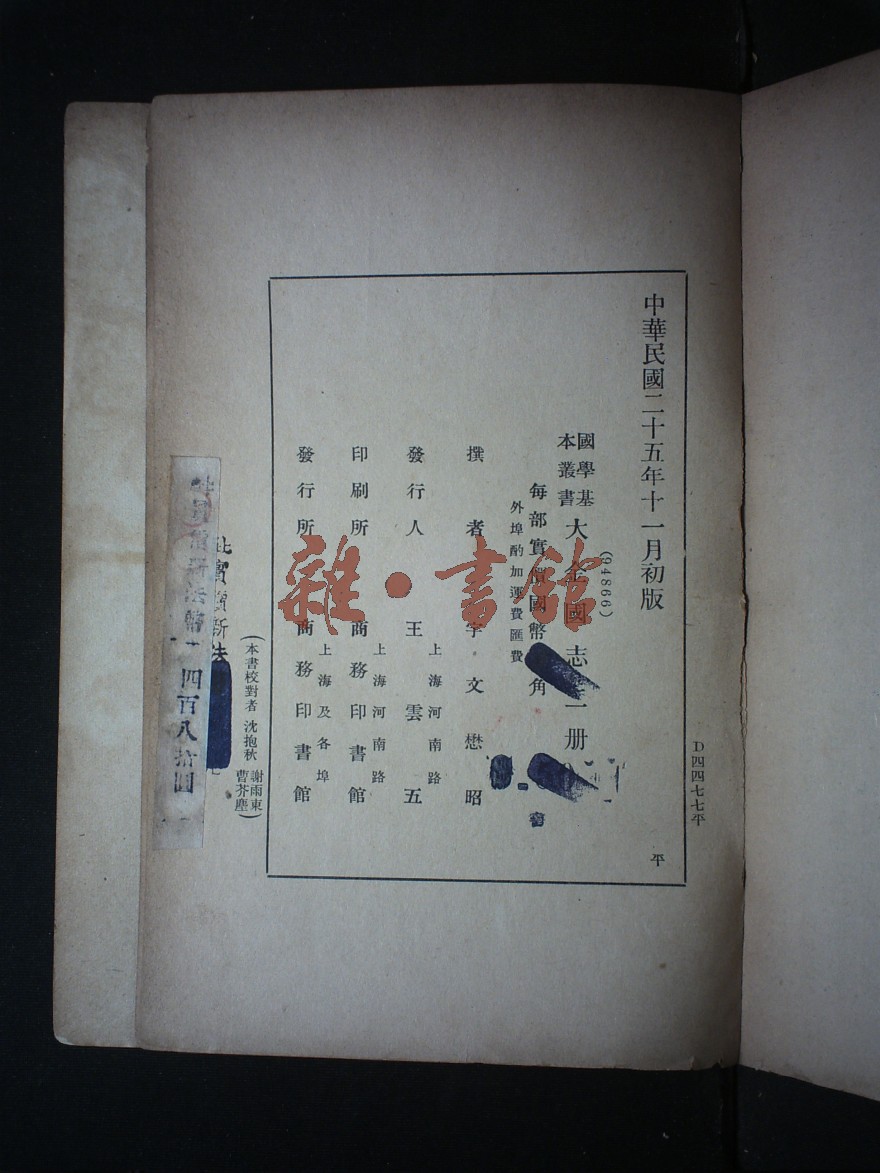 中華民國二十五年十一月初版
(94866)
國學基
本叢書
大金國志一册
每部實價國幣 角
外埠酌加運費匯費
撰者 宇文懋昭
上海河南路
發行人 王雲五
上海河南路
印刷所 商務印書館
上海及各埠
發行所 商務印書館
(本書校對者 沈抱秋 謝雨東 曹芥塵)
D四四七七平
平
四百八拾圓
雜·書館